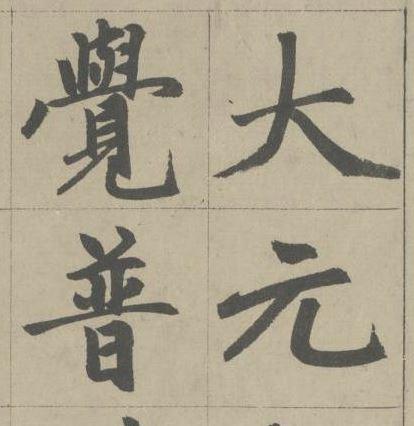 大元
覺普